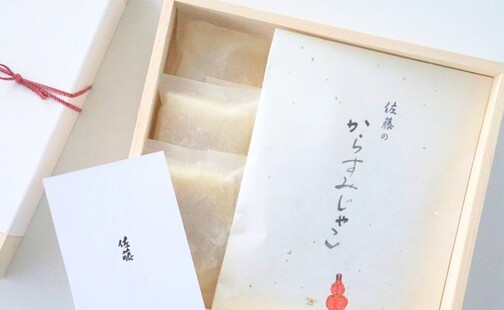 佐藤の
からすみじゃこ
佐藤